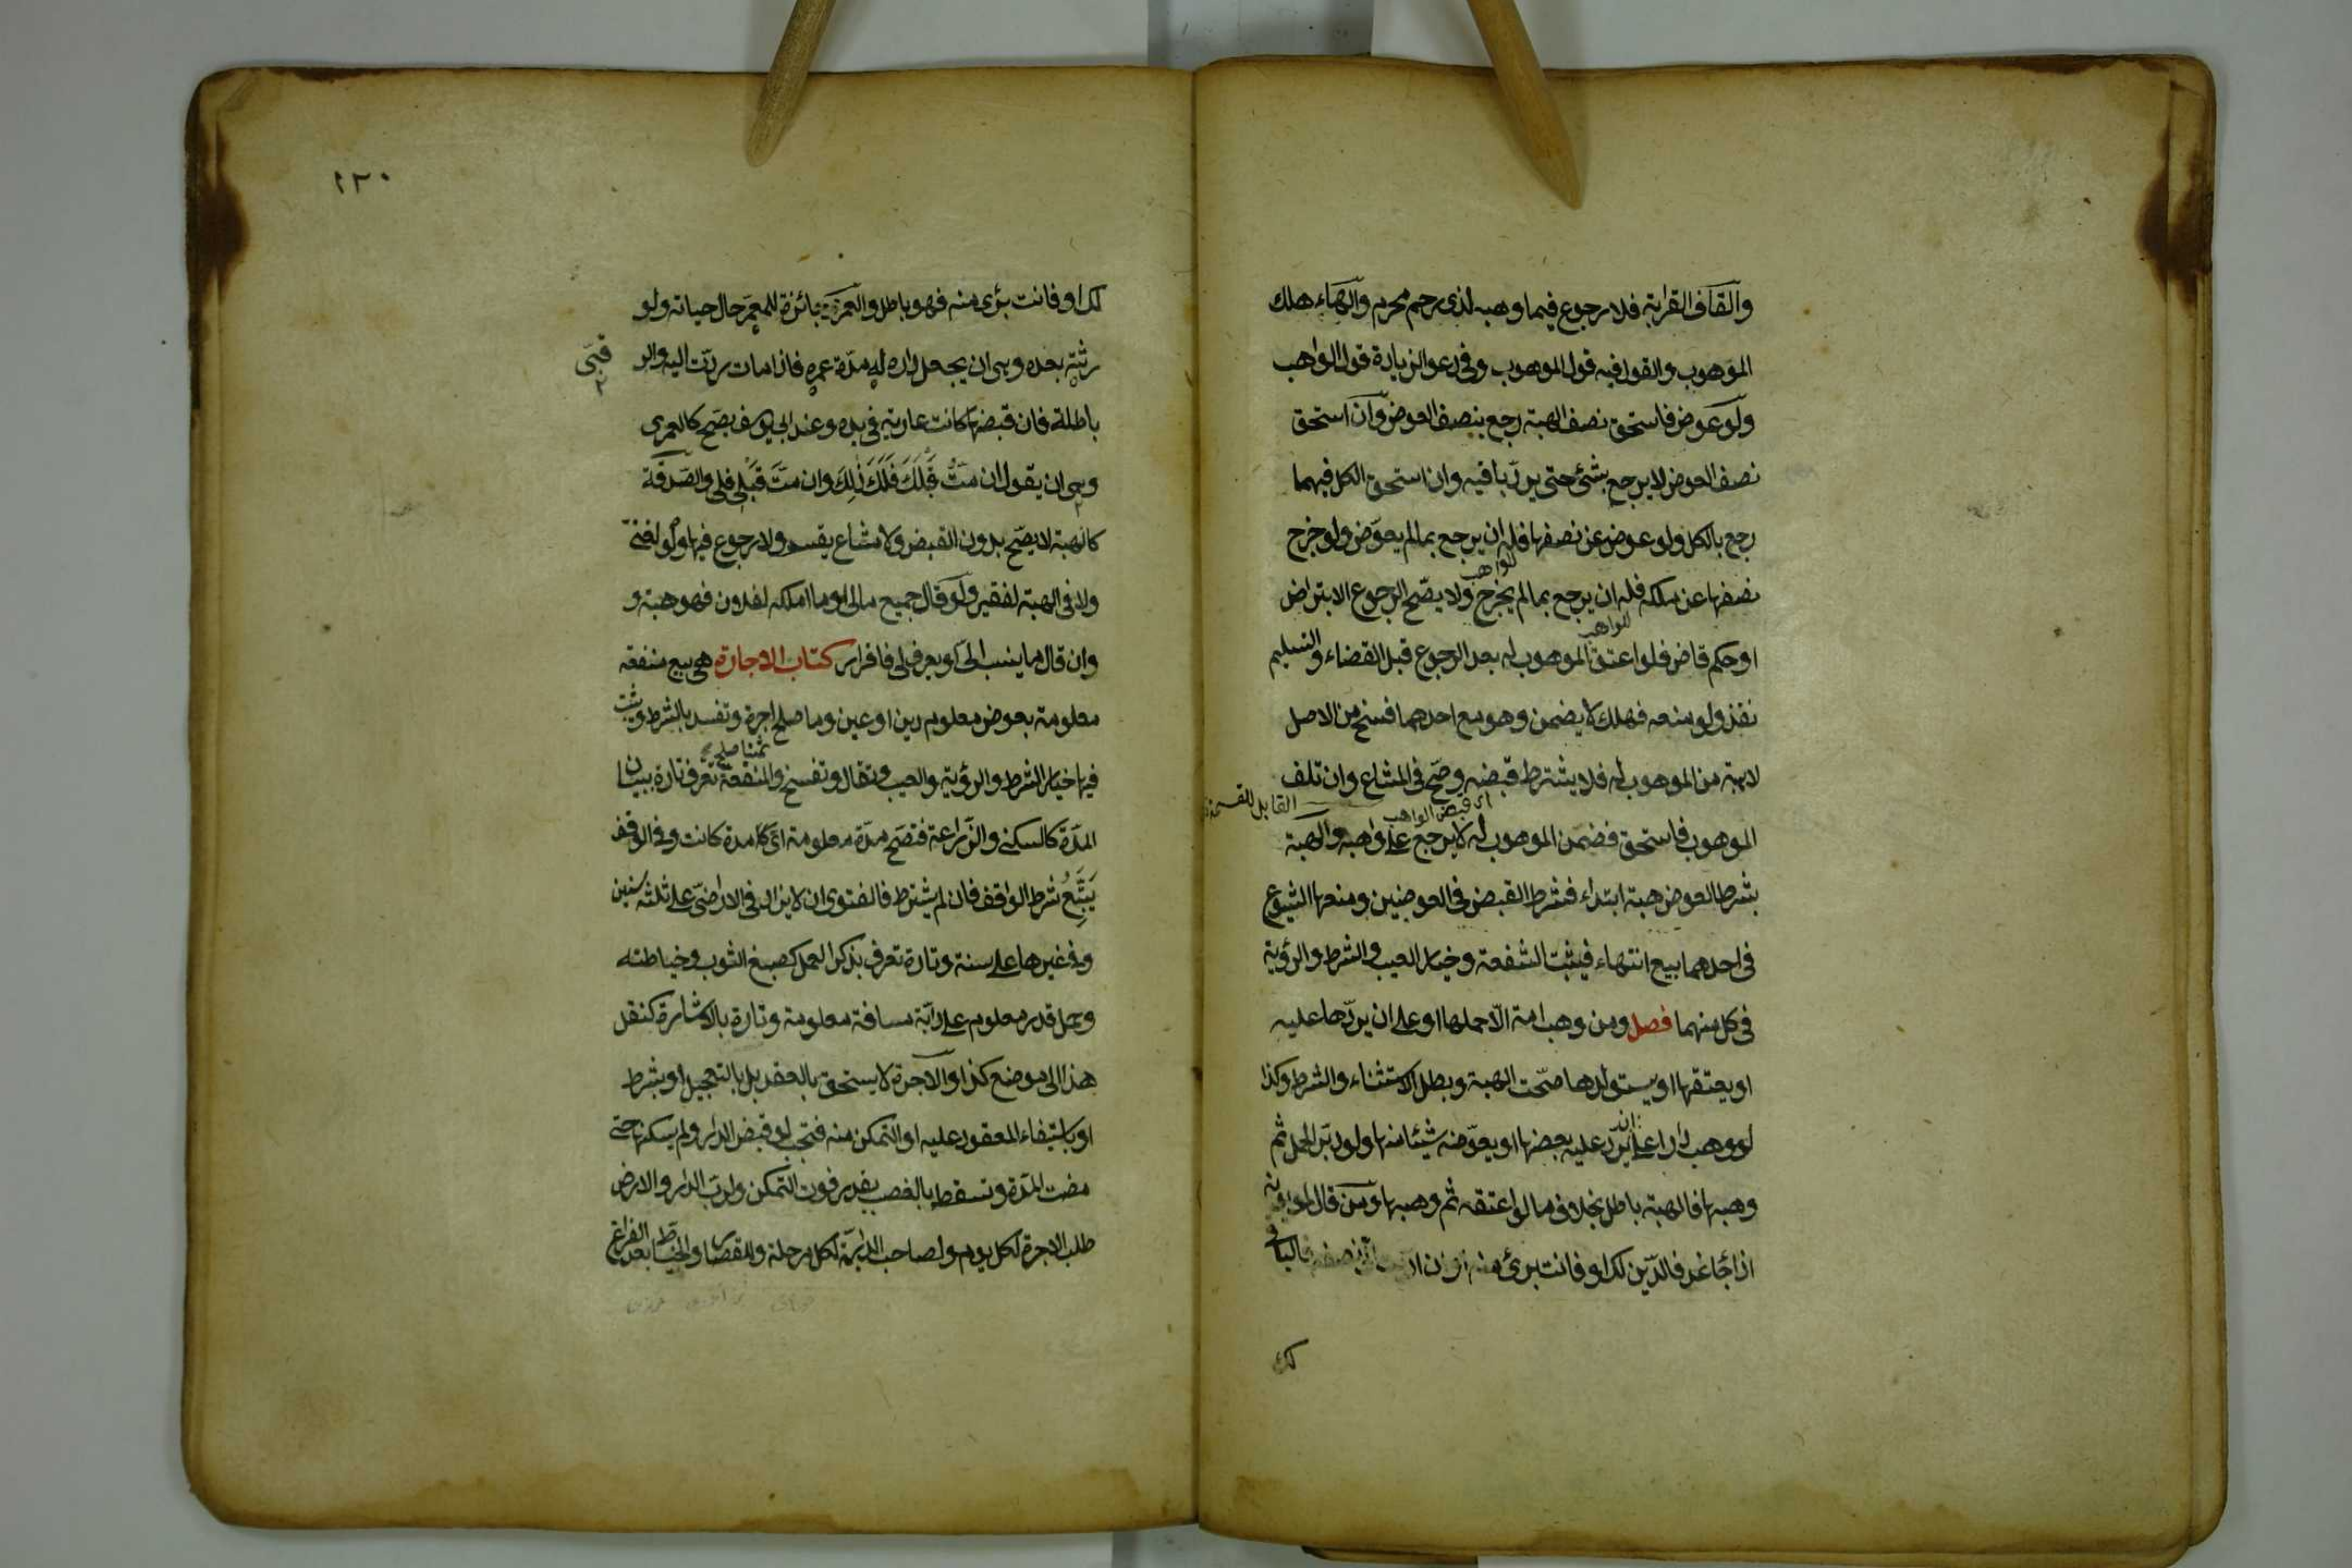 والقاف القرابة فلا رجوع فيما وهبه لذى رحم محرم والهاء هلاك
الموهوب والقول فيه قول الموهوب وفى دعو الزيادة قول الواهب
ولو عوض فاستحق نصف الهبة رجع بنصف العوض وان استحق
نصف العوض لا يرجع بشئ حتى يرد باقيه وان استحق الكل فيهما
رجع بالكل ولو عوض عن نصفها فله ان يرجع بما لم يعوض ولو خرج
نصفها عن ملكه فله ان يرجع بما لم يخرج ولا يصح الرجوع الا بتراض
الواهب
او حكم قاض فلو اعتق الموهوب له بعد الرجوع قبل القضاء والتسليم
للواهب
نفذ ولو منعه فهلك لا يضمن وهو مع احدهما فسخ من الاصل
لا هبة من الموهوب له فلا يشترط قبضه وصح فى المشاع وان تلف
اى قبض الواهب
القابل للقسمة
الموهوب فاستحق فضمن الموهوب له لا يرجع على واهبه والهبة
بشرط العوض هبة ابتداء فشرط القبض فى العوضين ومنعها الشيوع
فى احدهما بيع انتهاء فيثبت الشفعة وخيار العيب والشرط والرؤية
فى كل منهما فصل ومن وهب امة الا حملها او على ان يردها عليه
او يعتقها او يستولدها صحت الهبة وبطل الاستثناء والشرط وكذا
لو وهب دارا على ان يرد عليه بعضها او يعوضه شيئا منها ولو دبر الحمل ثم
وهبها فالهبة باطل بخلاف ما لو اعتقه ثم وهبها ومن قال لمديونه
اذا جاء غد فالدين لك او فانت برئ منه
لك
٢٣٠
لك او فانت برئ منه فهو باطل والعمرى جائزة للمعمر حال حياته ولو
رثته بعده وهى ان يجعل داره له مدة عمره فاذا مات ردت اليه والر
قبى
باطلة فان قبضها كانت عارية فى يده وعند ابى يوسف يصح كالعمرى
وهى ان يقول ان مت قبلك فلك ذلك وان مت قبلى فلى والصدقة
كالهبة لا يصح بدون القبض ولا مشاع يقسم ولا رجوع فيها ولو لغنى
ولا فى الهبة لفقير ولو قال جميع مالى او ما املكه لفلان فهو هبة و
وان قال ما ينسب الى او يعرف لى فاقرار كتاب الاجارة هى بيع منفعة
معلومة بعوض معلوم دين او عين وما صلح اجرة وتفسد بالشرط ويثبت
ثمنا صلح
فيها خيار الشرط والرؤية والعيب وتقال وتفسخ والمنفعة تعرف تارة ببيان
المدة كالسكنى والزراعة فتصح مدة معلومة اى مدة كانت وفى الوقف
يتبع شرط الواقف فان لم يشترط فالفتوى ان لا يزاد فى الاراضى على ثلثة سنين
وفى غيرها على سنة وتارة تعرف بذكر العمل كصبغ الثوب وخياطته
وحمل قدر معلوم على دابة مسافة معلومة وتارة بالاشارة كنقل
هذا الى موضع كذا والاجرة لا يستحق بالعقد بل بالتعجيل او بشرط
او باستيفاء المعقود عليه او التمكن منه فتجب لو قبض الدار ولم يسكنها حتى
مضت المدة وتسقط بالغصب بقدر فوت التمكن ولرب الدار والارض
طلب الاجرة لكل يوم ولصاحب الدابة لكل مرحلة وللقصار والخياط بعد الفراغ